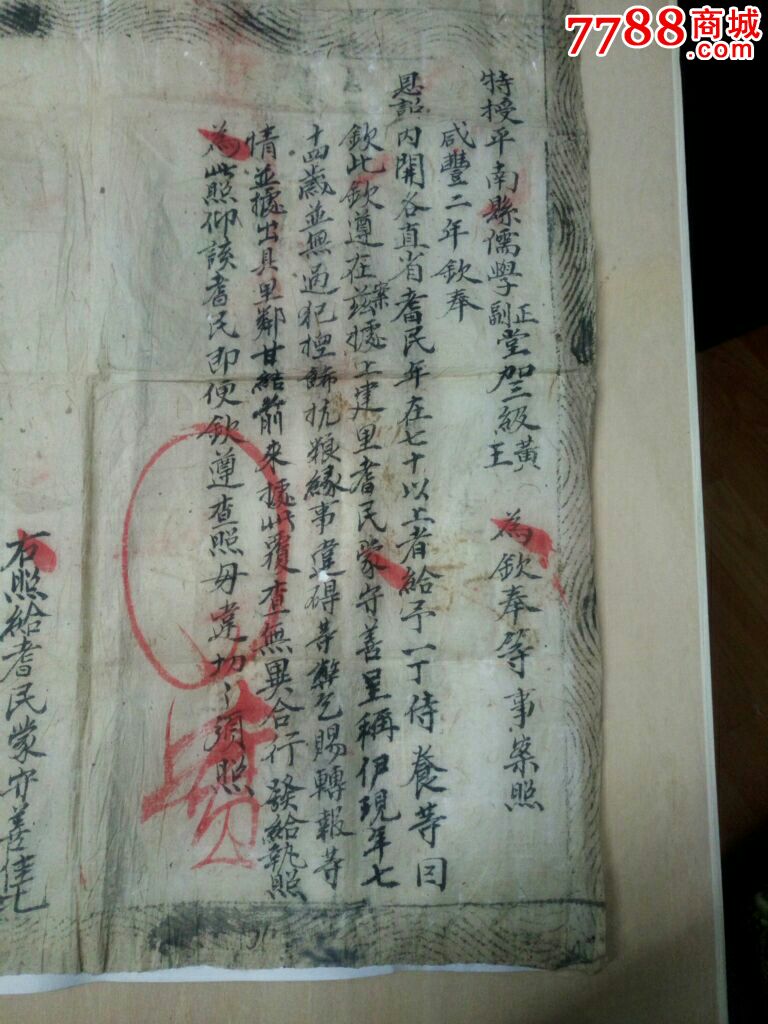 7788商城
.com
特授平南縣儒學正副堂加三級黃王 為欽奉等事案照
咸豐二年欽奉
恩詔內開各直省耆民年在七十以上者給予一丁侍養等因
欽此欽遵在案茲據上建里耆民蒙守善呈稱伊現年七
十四歲並無過犯抗粮緣事違碍等弊乞賜轉報等
情並據出具里鄰甘結前來據此覆查無異合行發給執照
為此照仰該耆民即便欽遵查照毋違切々須照
右照給耆民蒙守善